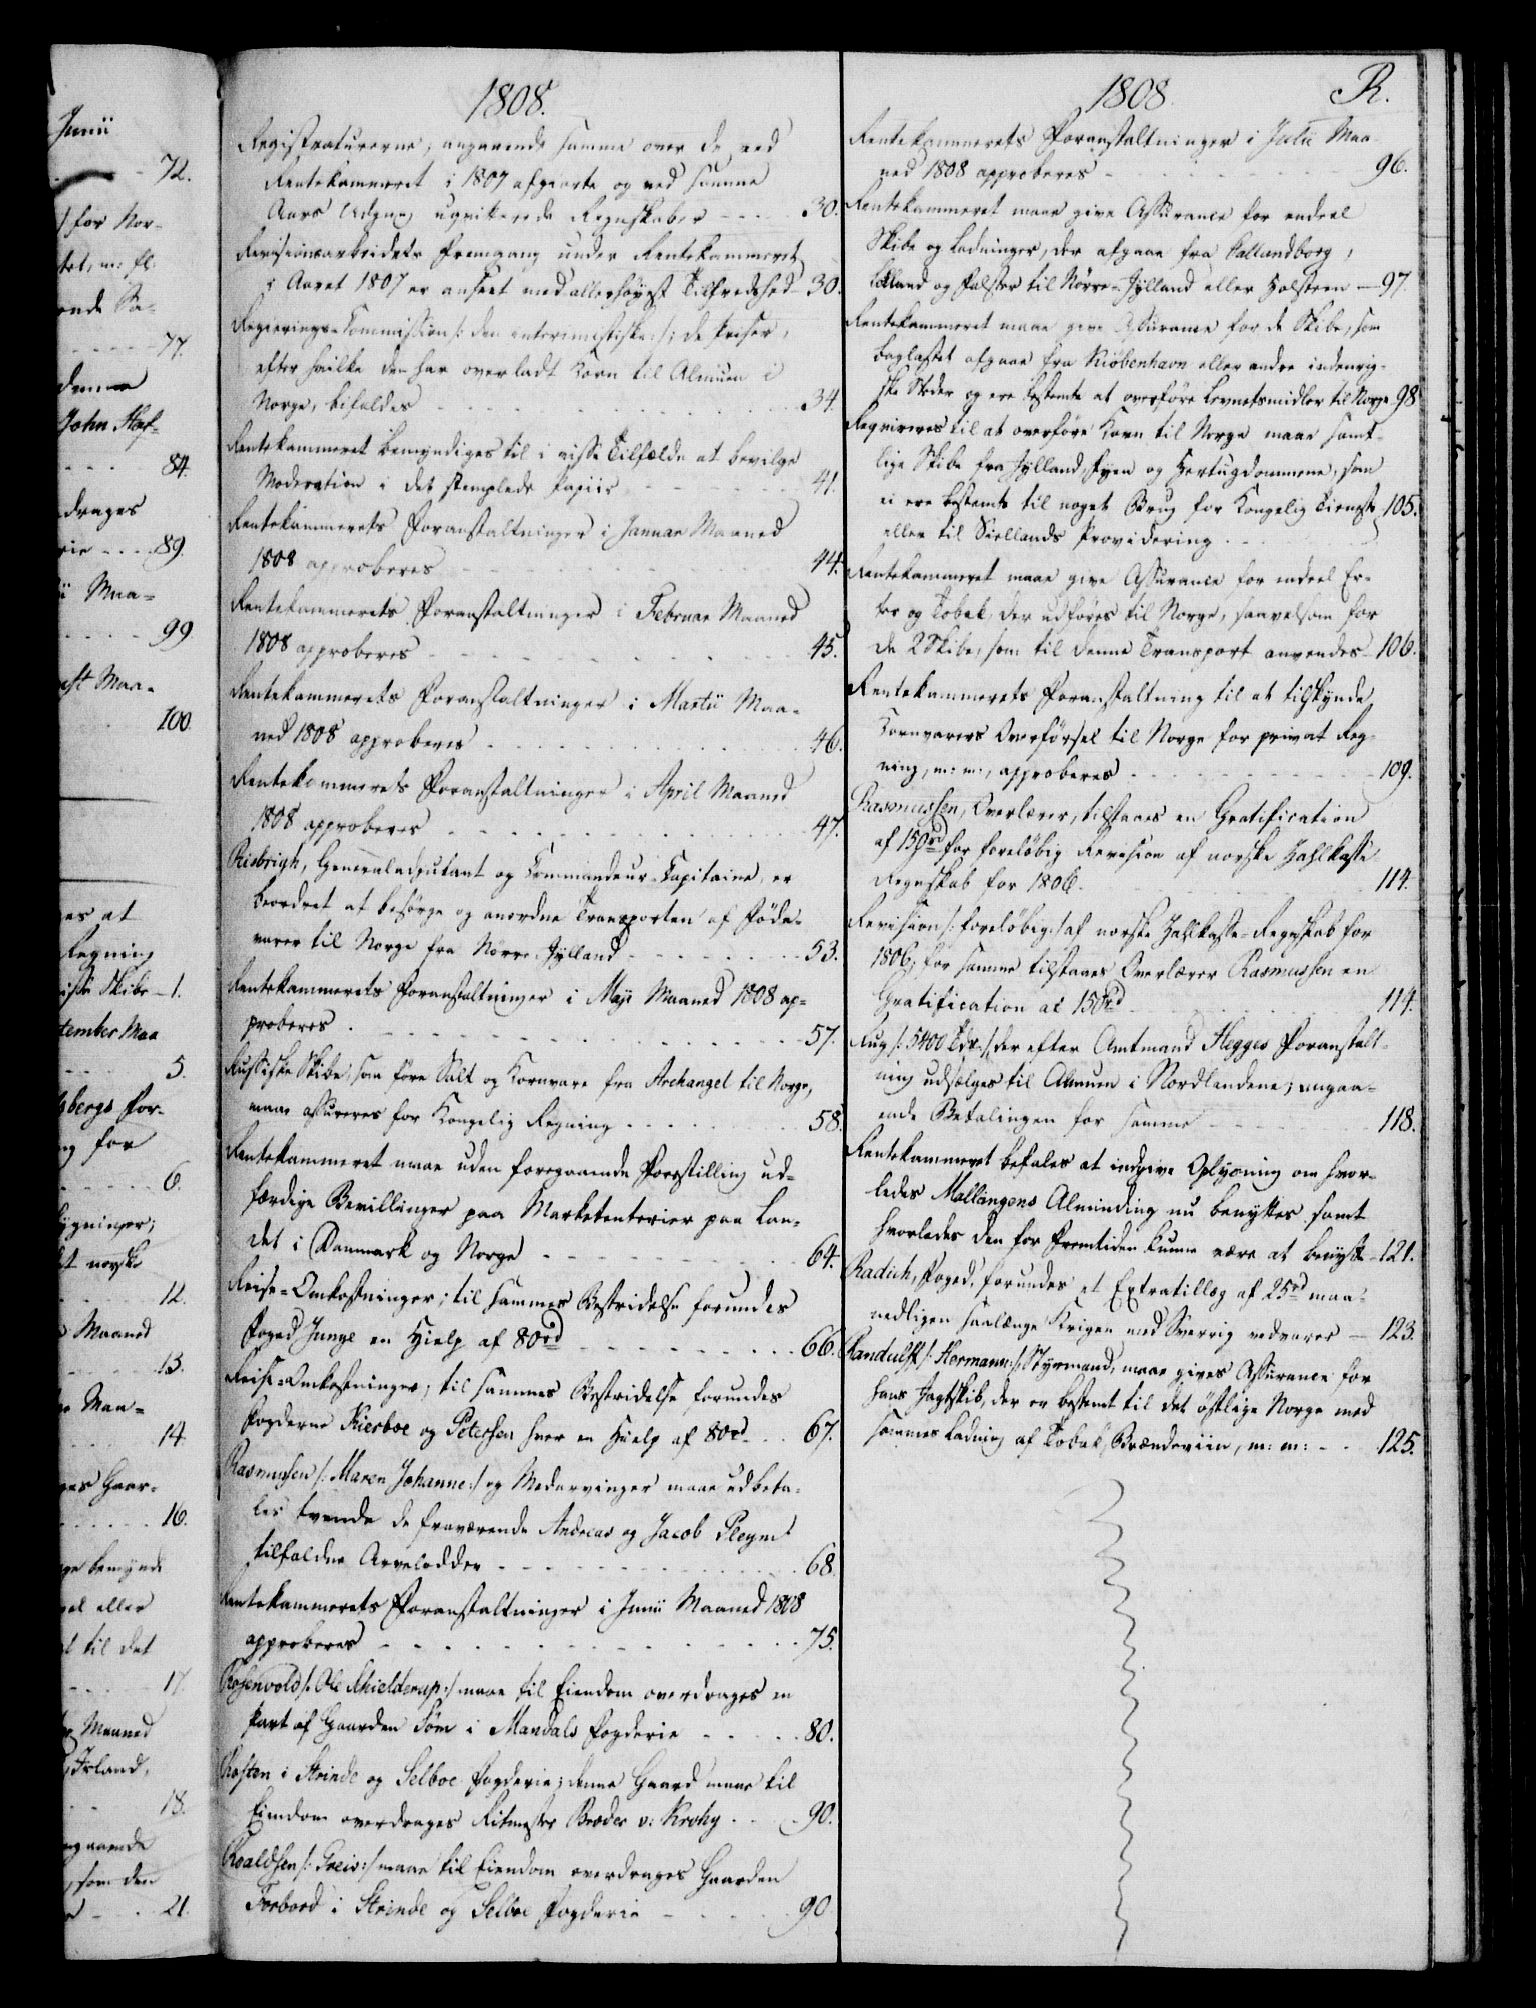 Junii
72.
/ for Nor-
tet, m: fl.
ende Ba-
77.
denne
John Haf-
84.
drages
rie 89.
ii Maa=
99
ust Maa-
100.
es at
Regning
Skibe 1.
tember Maa
5.
sbergs For-
ng for
6.
bygninger;
et norske
12.
Maaned
13.
Maa=
14.
ges Gaar-
16.
bemyndi
vel eller
til det
17.
Maaned
Irland,
18.
angaaende
som den
21.
1808.
Registraturerne, angaaende samme over de ved
Rentekammeret i 1807 afgiorte og ved samme
Aars Udgang uqviterede Regnskaber 30.
Revisionsarbeidets Fremgang under Rentekammeret
i Aaret 1807 er anseet med allerhøiest Tilfredshed 30.
Regierings-Commission /: den interimistiske :/; de Priser,
efter hvilke den har overladt Korn til Almuen i
Norge, bifaldes 34.
Rentekammeret bemyndiges til i visse Tilfælde at bevilge
Moderation i det stemplede Papiir 41.
Rentekammerets Foranstaltninger i Januar Maaned
1808 approberes 44.
Rentekammerets Foranstaltninger i Februar Maaned
1808 approberes 45.
Rentekammerets Foranstaltninger i Martii Maa=
ned 1808 approberes 46.
Rentekammerets Foranstaltninger i April Maaned
1808 approberes 47.
Risbrigh, Generaladjutant og Commandeur-Capitaine, er
beordret at besörge og anordne Transporten af Föde-
varer til Norge fra Nörre Jylland 53.
Rentekammerets Foranstaltninger i Maji Maaned 1808 ap=
proberes 57.
Russiske Skibe, som före Salt og Kornvare fra Archangel til Norge,
maae assureres for Kongelig Regning 58.
Rentekammeret maae uden foregaaende Forestilling ud=
færdige Bevillinger paa Marketenterier paa Lan=
det i Danmark og Norge 64.
Reise=Omkostninger; til sammes Bestridelse forundes
Foged Junge en Hielp af 80rd 66.
Reise=Omkostninger, til sammes Bestridelse forundes
Fogderne Kierboe og Petersen hver en Hielp af 80rd 67.
Rasmussen /: Maren Johanne :/ og Medarvinger maae udbeta=
les tvende de fraværende Andreas og Jacob Pleym
tilfaldne Arvelodder 68.
Rentekammerets Foranstaltninger i Junii Maaned 1808
approberes 75.
Rosenvold /: Ole Skielderup :/ maae til Eiendom overdrages en
Part af Gaarden Söm i Mandals Fogderie 80.
Rosten i Strinde og Selboe Fogderie; denne Gaard maae til
Eiendom overdrages Ritmester Broder v: Krohg 90.
Roaldsen /: Greis :/ maae til Eiendom overdrages Gaarden
Forbord i Strinde og Selboe Fogderie 90
1808 R.
Rentekammerets Foranstaltninger i Julii Maa
ned 1808 approberes 96.
Rentekammeret maae give Assurance for endeel
Skibe og Ladninger, der afgaae fra Callundborg,
Lolland og Falster til Nørre=Jylland eller Holsteen 97
Rentekammeret maae give Assurance for de Skibe, som
baglastet afgaae fra Kiöbenhavn eller andre indenrig-
ske Steder og ere bestemte at overföre Levnetsmidler til Norge 98
Reqvireres til at overföre Korn til Norge maae samt-
lige Skibe fra Jylland, Fyen og Hertugdömmene, som
ei ere bestemte til noget Brug for Kongelig Tieneste 105.
eller til Siellands Providering
Rentekammeret maae give Assurance for endeel Er-
ter og Tobak, der udföres til Norge, saavelsom for
de 2 Skibe, som til denne Transport anvendes 106.
Rentekammerets Foranstaltning til at tilskynde
Kornvarers Overförsel til Norge for privat Reg-
ning, m: m:, approberes 109.
Rasmussen, Overlærer, tilstaaes en Gratification
af 150rd for foreløbig Revision af norske Zahlkasse
Regnskab for 1806. 114.
Revision /: foreløbig :/ af norske Zahlkasse=Regnskab for
1806, for samme tilstaaes Overlærer Rasmussen en
Gratification af 150rd 114.
Rug /: 5400 Tdr :/, der efter Amtmand Hegges Foranstalt-
ning udsælges til Almuen i Nordlandene; angaa=
ende Betalingen for samme 118.
Rentekammeret befales at indgive Oplysning om hvor-
ledes Mallingens Alminding nu benyttes samt
hvorledes den for Fremtiden kunne være at benytte 121.
Radich, Foged, forundes et Extratillæg af 25rd maa-
nedligen saalænge Krigen med Sverrig vedvarer 123.
Randulff /: Hermann :/ Styrmand, maae gives Assurance for
hans Jagtskib, der er bestemt til det östlige Norge med
sammes Ladning af Tobak, Brændeviin, m: m: 125.